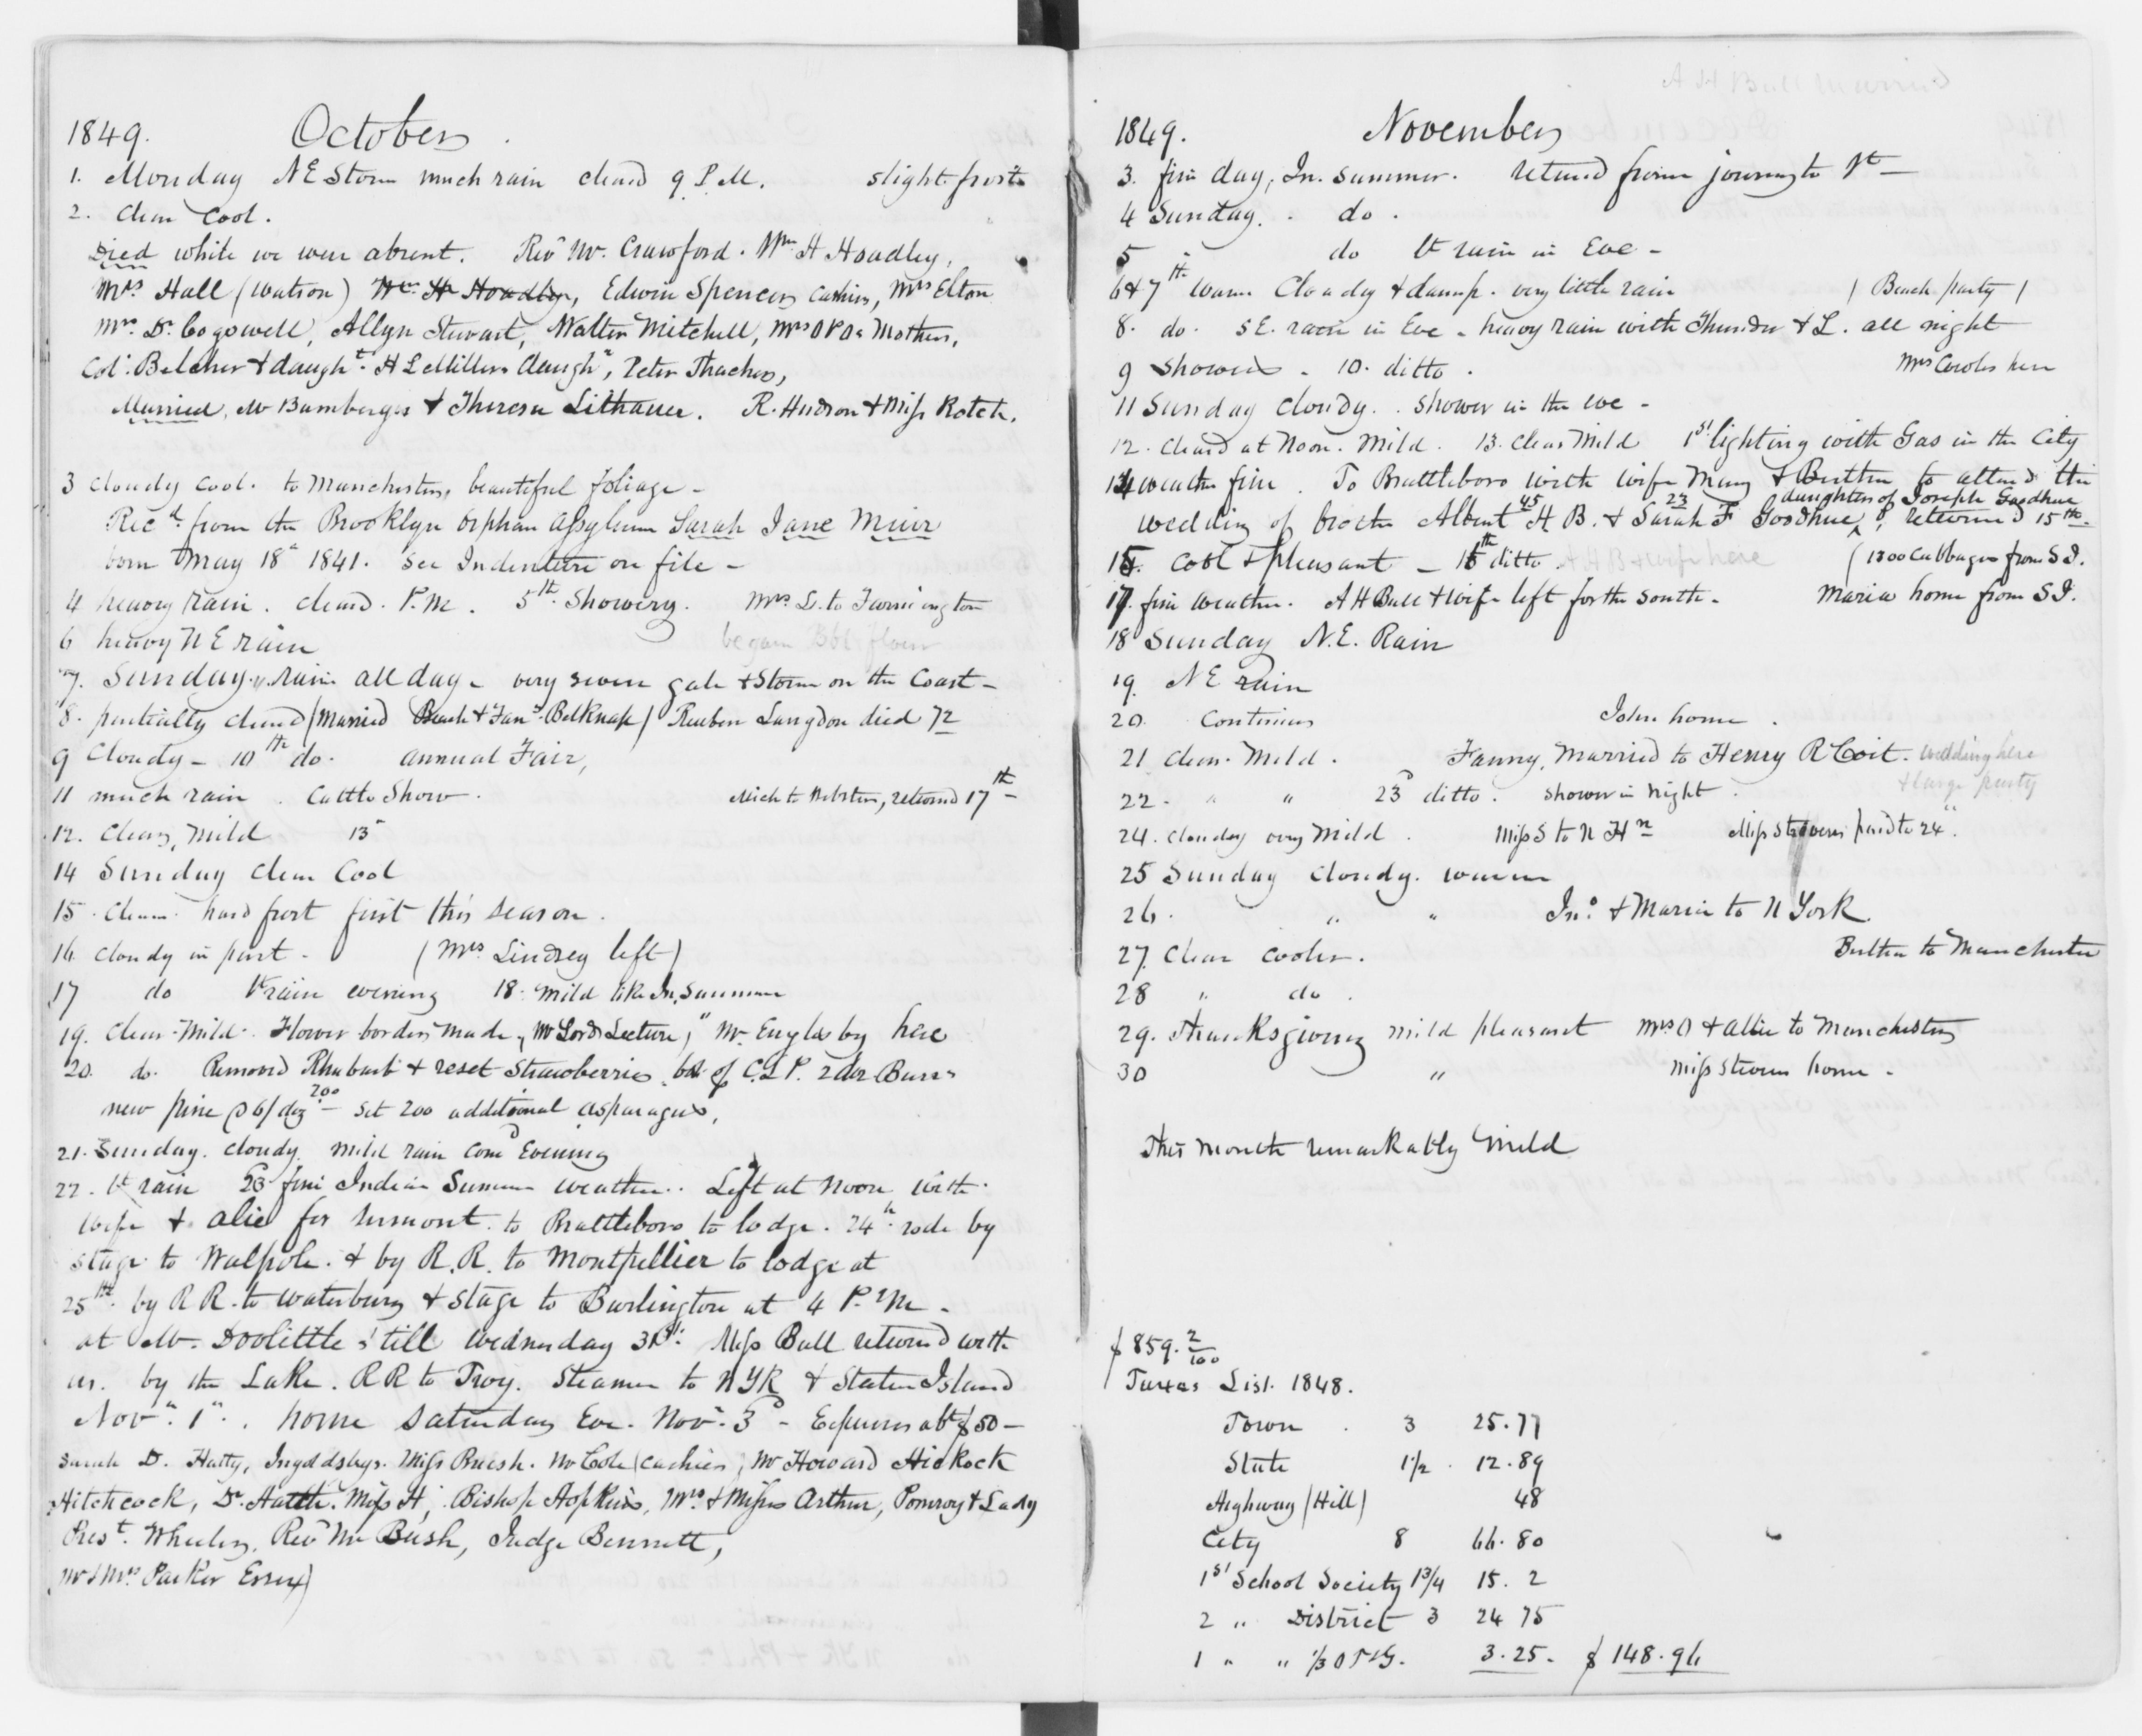 1849. October
1. Monday NE Storm much rain cleard 9 P.M. slight frosts
2. Clear Cool.
Died while we were absent. Revd Mr. Crawford. Wm H Hoadley,
Mrs Hall (Watson) Wm H Hoadley, Edwin Spencer Cashier, Mrs Elton
Mrs Dr. Cogswell, Allyn Stewart, Walter Mitchell, Mrs Mother,
Col. Belcher & daught. H L Millers daugh, Peter Thacher,
Married, Mr Bamberger & Theresa Lithauer. R. Hudson & Miss Rotch.
3 Cloudy Cool. to Manchester, beautiful foliage -
Recd. from the Brooklyn Orphan Assylum Sarah Jane Muir
born May 18th 1841. see Indenture on file -
4 heavy rain. cleard. P.M. 5th Showery. Mrs. L. to Farmington
6 heavy N E rain began Bbl flour
7. Sunday rain all day - very severe gale & Storm on the Coast -
8. partially cleard (Married Beach & Fany. Belknap) Reuben Langdon died 72
9 Cloudy - 10th do. annual Fair,
11 much rain. Cattle Show. to Webster, returned 17th -
12. Clear, Mild 13
14 Sunday Clear Cool
15. Clear. hard frost first this season.
16 Cloudy in part - (Mrs. Lindsey left)
17 do lt rain evening 18. Mild like In. Summer
19. Clear. Mild. Flower borders made, Mr Lords Lecture, Mr. Englesby here
20. do. Removed Rhubarb & reset Strawberries, bot of C.L.P. 2 doz Burrs
new pine @ 6/ doz 200 - set 200 additional asparagus,
21. Sunday. Cloudy. mild rain comd Evening
22. lt rain 23 fine Indian Summer weather. Left at Noon with
Wife & Alice for Vermont. to Brattleboro to lodge. 24th. rode by
Stage to Walpole. & by R.R. to Montpellier to lodge at
25th. by R R. to Waterbury & Stage to Burlington at 4 P.M. -
at Mr. Doolittle's till Wednesday 31st. Miss Bull returned with
us. by the Lake. R R to Troy. Steamer to N Yk & Staten Island
Novr. 1st. home Saturday Eve. Novr. 3d - Expenses abt $50 -
Sarah D. Hatty, Ingoldsbys. Miss Brush. Mr Cole (cashier, Mr Howard Hickock
Hitchcock, Dr. Hatch. Miss H, Bishop Hopkins, Mrs. & Misses Arthur, Pomroy & Lady
Prest. Wheeler, Revd Mr Bush, Judge Bennett,
Mr & Mrs Parker Essex)
A H Bull Married
1849. November
3. fine day, In. Summer. returned from journey to Vt -
4 Sunday. . do.
5 " do lt rain in Eve -
6 & 7th Warm Cloudy & damp. very little rain (Beach party)
8. do. S E. rain in Eve - heavy rain with Thunder & L. all night
9 Showers - 10. ditto. Mrs Cowles here
11 Sunday Cloudy. Shower in the eve -
12. Cleard at Noon. Mild. 13. Clear Mild 1st lighting with Gas in the City
14 weather fine. To Brattleboro with wife Mary & Buther to attend the
daughter of Joseph Goodhue
wedding of brother Albert 45 H B. & Sarah 23 F Goodhue, returned 15th.
15. Cool & pleasant - 16th ditto. A H B & wife here (1300 Cabbages from S I.
17. fine weather. A H Bull & wife left for the South - Maria home from S I.
18 Sunday N.E. Rain
19. N E rain
20. Continues John home.
21 Clear. Mild. Fanny, Married to Henry R Coit. Wedding here
& large party
22. " " 23d ditto. shower in Night.
24. Cloudy very Mild. Miss S to N Hn Miss Stevens paid to 24th.
25 Sunday Cloudy. warm
26. " " Jno. & Maria to N York
27. Clear cooler. Buther to Manchester
28 " do.
29. Thanksgiving mild pleasant Mrs D & Allie to Manchester
30 " Miss Stevens home -
This Month remarkably Mild
$859. 2/100
Taxes List. 1848.
Town. 3 25.77
State 1 1/2. 12.89
Highway (Hill) 48
City 8 66.80
1st School Society 1 3/4 15. 2
2 " District 3 24 75
1 " " 1/3 3.25. $148.96